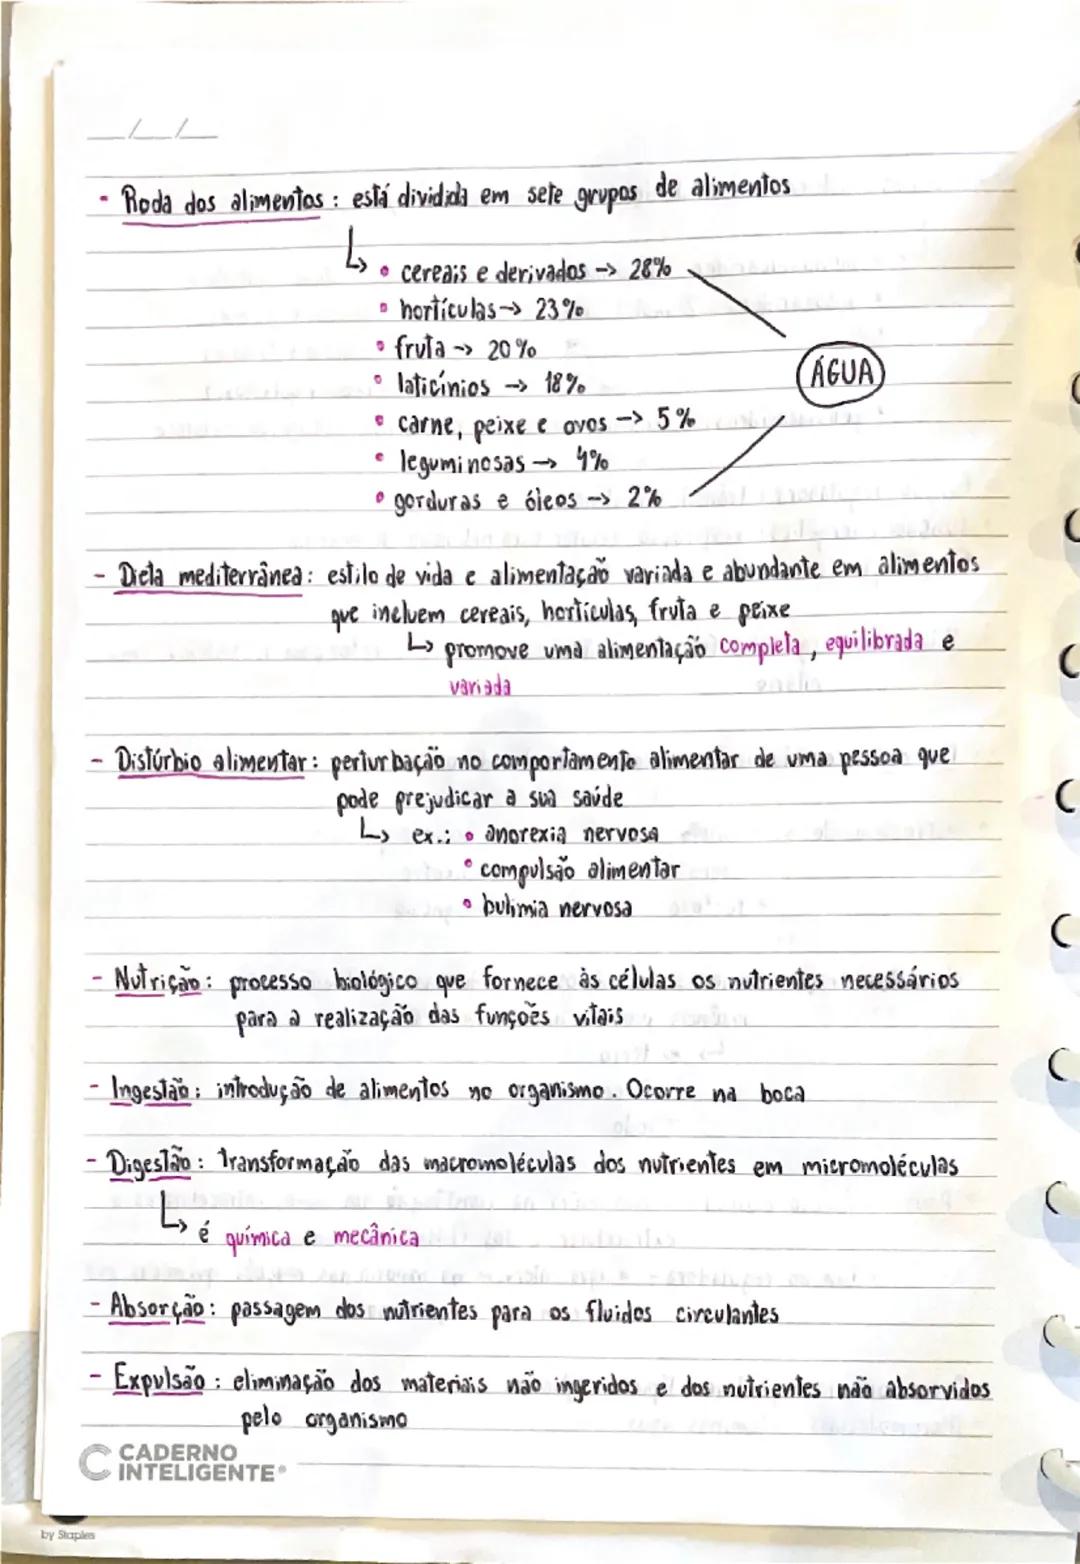 __/__/__
- Roda dos alimentos : está dividida em sete grupos de alimentos
↳ • cereais e derivados -> 28%
• hortículas -> 23%
• fruta -> 20%
• laticínios -> 18%
• carne, peixe e ovos -> 5%
• leguminosas -> 4%
• gorduras e óleos -> 2%
ÁGUA
- Dieta mediterrânea : estilo de vida e alimentação variada e abundante em alimentos
que incluem cereais, hortículas, fruta e peixe
↳ promove uma alimentação completa, equilibrada e
variada
- Distúrbio alimentar : perturbação no comportamento alimentar de uma pessoa que
pode prejudicar a sua saúde
↳ ex.: • anorexia nervosa
• compulsão alimentar
• bulimia nervosa
- Nutrição : processo biológico que fornece às células os nutrientes necessários
para a realização das funções vitais
- Ingestão : introdução de alimentos no organismo. Ocorre na boca
- Digestão : transformação das macromoléculas dos nutrientes em micromoléculas
↳ é química e mecânica
- Absorção : passagem dos nutrientes para os fluidos circulantes
- Expulsão : eliminação dos materiais não ingeridos e dos nutrientes não absorvidos
pelo organismo
CADERNO
INTELIGENTE®
by Staples